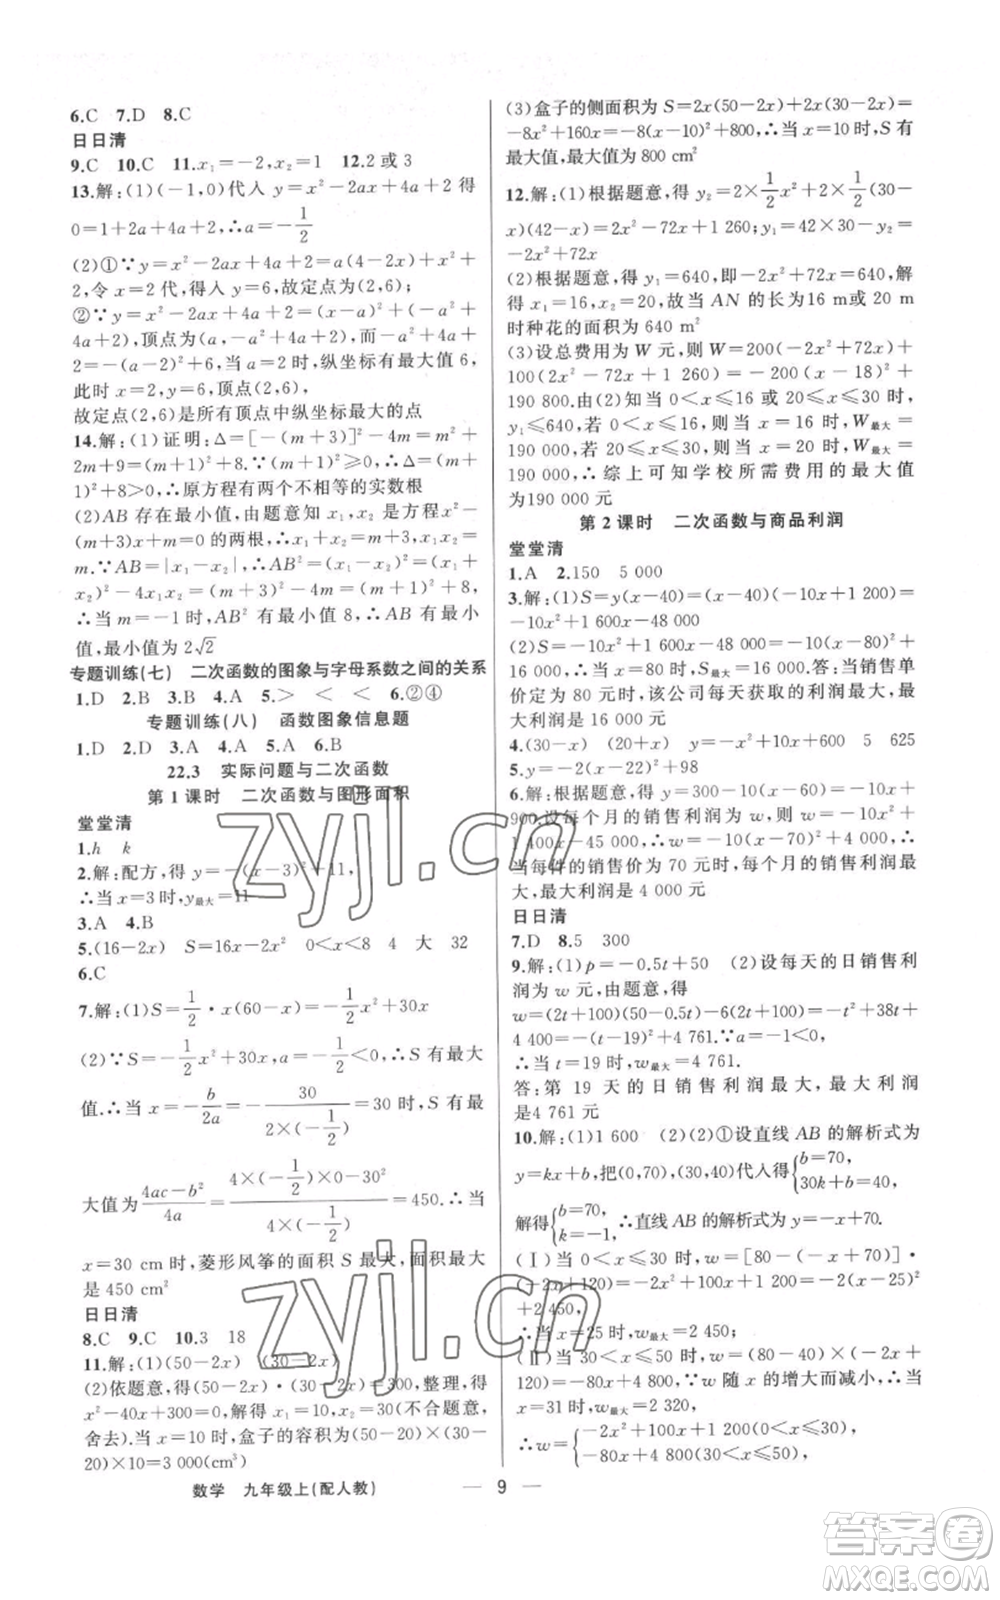 6.C 7.D 8.C
日日清
9.C 10.C 11.x₁=-2,x₂=1 12.2 或 3
13.解:(1)(-1,0)代入 y=x²-2ax+4a+2 得
0=1+2a+4a+2,∴a=-1/2
(2)①∵y=x²-2ax+4a+2=a(4-2x)+x²+
2,令 x=2 代,得人 y=6,故定点(2,6);
②∵y=x²-2ax+4a+2=(x-a)²+(-a²+
4a+2),顶点为(a,-a²+4a+2),而-a²+4a+
2=-(a-2)²+6,当 a=2 时,纵坐标有最大值 6,
此时 x=2,y=6,顶点(2,6);
故定点(2,6)是所有顶点中纵坐标最大的点
14.解:(1)证明:Δ=[-(m+3)]²-4m=m²+
2m+9=(m+1)²+8.∵(m+1)²⩾0,∴(m+
1)²+8>0,∴原方程有两个不相等的实数根
(2)AB 存在最小值,由题意知 x₁,x₂是原方程
的两根,∴x₁+x₂=m+3,x₁x₂=
m.∵AB=|x₁-x₂|,∴AB²=(x₁-x₂)²=(x₁+
x₂)²-4x₁x₂=(m+3)²-4m=(m+1)²+8,
∴当 m=-1 时,AB²有最小值 8,∴AB 有最小
值,最小值为 2√2
专题训练(七) 二次函数的图象与字母系数之间的关系
1.D 2.B 3.B 4.A 5.> < < 6.②④
专题训练(八) 函数图象信息题
1.D 2.D 3.A 4.A 5.A 6.B
22.3 实际问题与二次函数
第 1 课时 二次函数与图形面积
堂堂清
1.h k
2.解:配方,得 y=-(x-3)²+11,
∴当 x=3 时,y最大=11
3.A 4.B
5.(16-2x) S=16x-2x² 0<x<8 4 大 32
6.C
7.解:(1)S=1/2·x(60-x)=-1/2x²+30x
(2)∵S=-1/2x²+30x,a=-1/2<0,∴S 有最大
值.∴当 x=-b/2a=-30/(2×(-1/2))=30 时,S 有最
大值为(4ac-b²)/4a=(4×(-1/2)×0-30²)/(4×(-1/2))=450.∴当
x=30 cm 时,菱形风筝的面积 S 最大,最大面积
是 450 cm²
日日清
8.C 9.C 10.3 18
11.解:(1)(50-2x) (30-2x)
(2)依题意,得(50-2x)(30-2x)=300,整理,得
x²-40x+300=0,解得 x₁=10,x₂=30(不合题意,
舍去).当 x=10 时,盒子的容积为(50-20)×(30-
20)×10=3 000(cm³)
(3)盒子的侧面积为 S=2x(50-2x)+2x(30-2x)=
-8x²+160x=-8(x-10)²+800,∴当 x=10 时,S 有
最大值,最大值为 800 cm²
12.解:(1)根据题意,得 y₂=2×1/2x²+2×1/2(30-
x)(42-x)=2x²-72x+1 260;y₁=42×30-y₂=
-2x²+72x
(2)根据题意,得 y₁=640,即-2x²+72x=640,解
得 x₁=16,x₂=20,故当 AN 的长为16 m或20 m
时种花的面积为 640 m²
(3)设总费用为 W 元,则 W=200(-2x²+72x)+
100(2x²-72x+1 260)=-200(x-18)²+
190 800.由(2)知当 0<x⩽16 或 20⩽x⩽30 时,
y₁⩽640,若 0<x⩽16,当 x=16 时,W最大=
190 000,若 20⩽x⩽30,当 x=20 时,W最大=
190 000,∴综上可知学校所需费用的最大值
为190 000 元
第 2 课时 二次函数与商品利润
堂堂清
1.A 2.150 5 000
3.解:(1)S=y(x-40)=(x-40)(-10x+
1 200)=-10x²+1 600x-48 000
(2)S=-10x²+1 600x-48 000=-10(x-80)²+
16 000,∴当 x=80 时,S最大=16 000.答:当销售单
价定为 80 元时,该公司每天获取的利润最大,最
大利润是 16 000 元
4.(30-x) (20+x) y=-x²+10x+600 5 625
5.y=-2(x-22)²+98
6.解:根据题意,得 y=300-10(x-60)=-10x+
900.设每个月的销售利润为 w,则 w=(x-
50)y=-10x²+1 400x-45 000,∴w=-10(x-70)²+4 000,∴
当每件的销售价为 70 元时,每个月的销售利润最
大,最大利润为 4 000 元
日日清
7.D 8.5 300
9.解:(1)p=-0.5t+50 (2)设每天的日销售利
润为 w 元,由题意,得
w=(2t+100)(50-0.5t)-6(2t+100)=-t²+38t+
4 400=-(t-19)²+4 761.∵a=-1<0,
∴当 t=19 时,w最大=4 761.
答:第 19 天的日销售利润最大,最大利润
是4 761 元
10.解:(1)1 600 (2)(2)①设直线 AB 的解析式为
y=kx+b,把(0,70),(30,40)代人得{b=70, 30k+b=40,
解得{b=70, k=-1. ∴直线 AB 的解析式为 y=-x+70.
(Ⅰ)当 0<x⩽30 时,w=[80-(-x+70)]·
(-2x+120)=-2x²+100x+1 200=-2(x-25)²+
2 450,
∴当 x=25 时,w最大=2 450;
(Ⅱ)当 30<x⩽50 时,w=(80-40)×(-2x+
120)=-80x+4 800,∵w 随 x 的增大而减小,∴当
x=31 时,w最大=2 320,
∴w={-2x²+100x+1 200(0<x⩽30) -80x+4 800(30<x⩽50).
数学 九年级上(配人教) — 9 —
zyjl.cn
zyjl.cn
答案卷
MXQE.COM